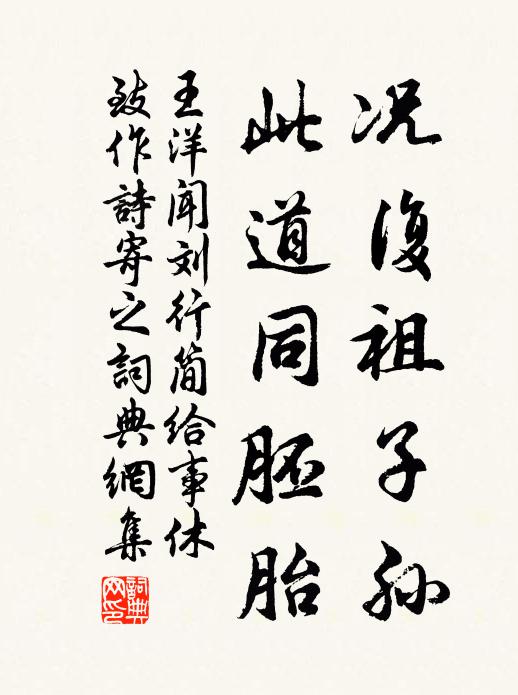 况復祖子孙
此道同胚胎
王洋闻刘行简给事休
致作詩寄之詞典網集
詞典網印